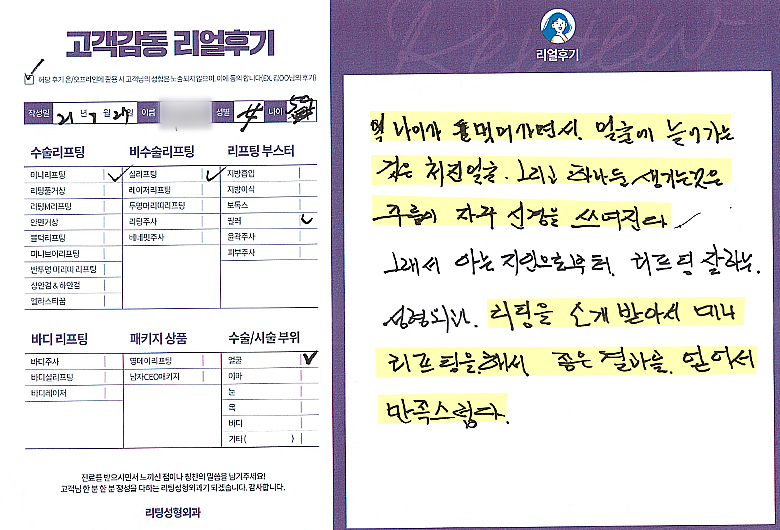 고객감동 리얼후기
해당 후기 온/오프라인에 활용 시 고객님의 성함은 노출되지 않으며, 이에 동의 합니다(EX. 김OO님의 후기)
작성일 21 년 7 월 29일 이름 성별 女 나이
수술리프팅
미니리프팅
리팅풀거상
리팅M리프팅
안면거상
블럭리프팅
미니브이리프팅
반투명 머리띠 리프팅
상안검 & 하안검
엘라스티꿈
비수술리프팅
실리프팅
레이저리프팅
투명머리띠리프팅
리팅주사
베네핏주사
리프팅 부스터
지방흡입
지방이식
보톡스
필러
윤곽주사
피부주사
바디 리프팅
바디주사
바디실리프팅
바디레이저
패키지 상품
영데이리프팅
남자CEO패키지
수술/시술 부위
얼굴
이마
눈
목
바디
기타 ( )
진료를 받으시면서 느끼신 점이나 칭찬의 말씀을 남겨주세요!
고객님 한 분 한 분 정성을 다하는 리팅성형외과가 되겠습니다. 감사합니다.
리팅성형외과
Review
리얼후기
나이가 들먹어가면서. 얼굴에 늘어가는
것은 처진얼굴. 그리고 하나둘 생기는것은
주름이 자꾸 신경을 쓰여진다
그래서 아는 지인으로부터. 리프팅 잘하는.
성형외과. 리팅을 소개 받아서 미니
리프팅을.해서. 좋은 결과를. 얻어서
만족스럽다.